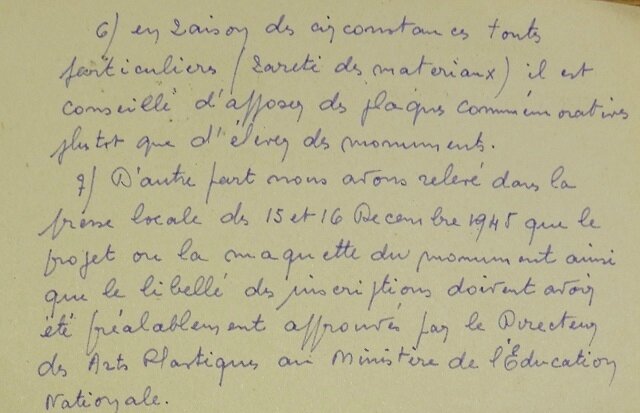 6) en raison des circonstances toutes
particuliers (rareté des materiaux) il est
conseillé d'apposer des plaques commémoratives
plutot que d'élever des monuments.
7) D'autre part nous avons relevé dans la
presse locale des 15 et 16 Decembre 1945 que le
projet ou la maquette du monument ainsi
que le libellé des inscriptions doivent avoir
été préalablement approuvés par le Directeur
des Arts Plastiques au Ministère de l'Éducation
Nationale.